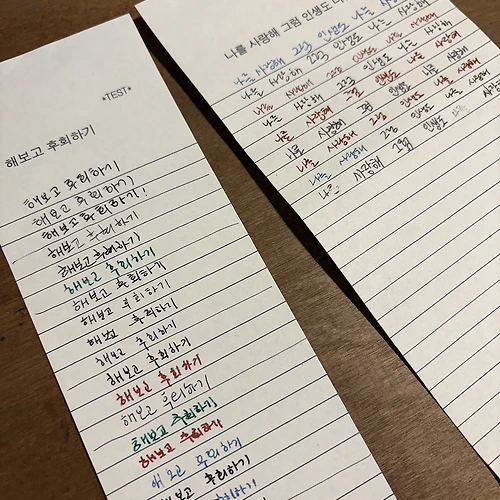 *TEST*
해보고 후회하기
해보고 후회하기
해보고 후회하기
해보고 후회하기!
해보고 후회하기
해보고 후회하기
해보고 후회하기
해보고 후회하기
해보고 후회하기
해보고 후회하기
해보고 후회하기
해보고 후회하기
해보고 후회하기
해보고 후회하기
해보고 후회하기
해보고 후회하기
해보고
해보고 후회하기
후회하기
나를 사랑해 그럼 인생도
나를 사랑해 그럼 인생도 나를
나를 사랑해 그럼 인생도 나를 사랑해
나를 사랑해 그럼 인생도 나를 사랑해
나를 사랑해 그럼 인생도 나를 사랑해
나를 사랑해 그럼 인생도 나를 사랑해
나를 사랑해 그럼 인생도 나를 사랑해
나를 사랑해 그럼 인생도 나를
나를 사랑해 그럼